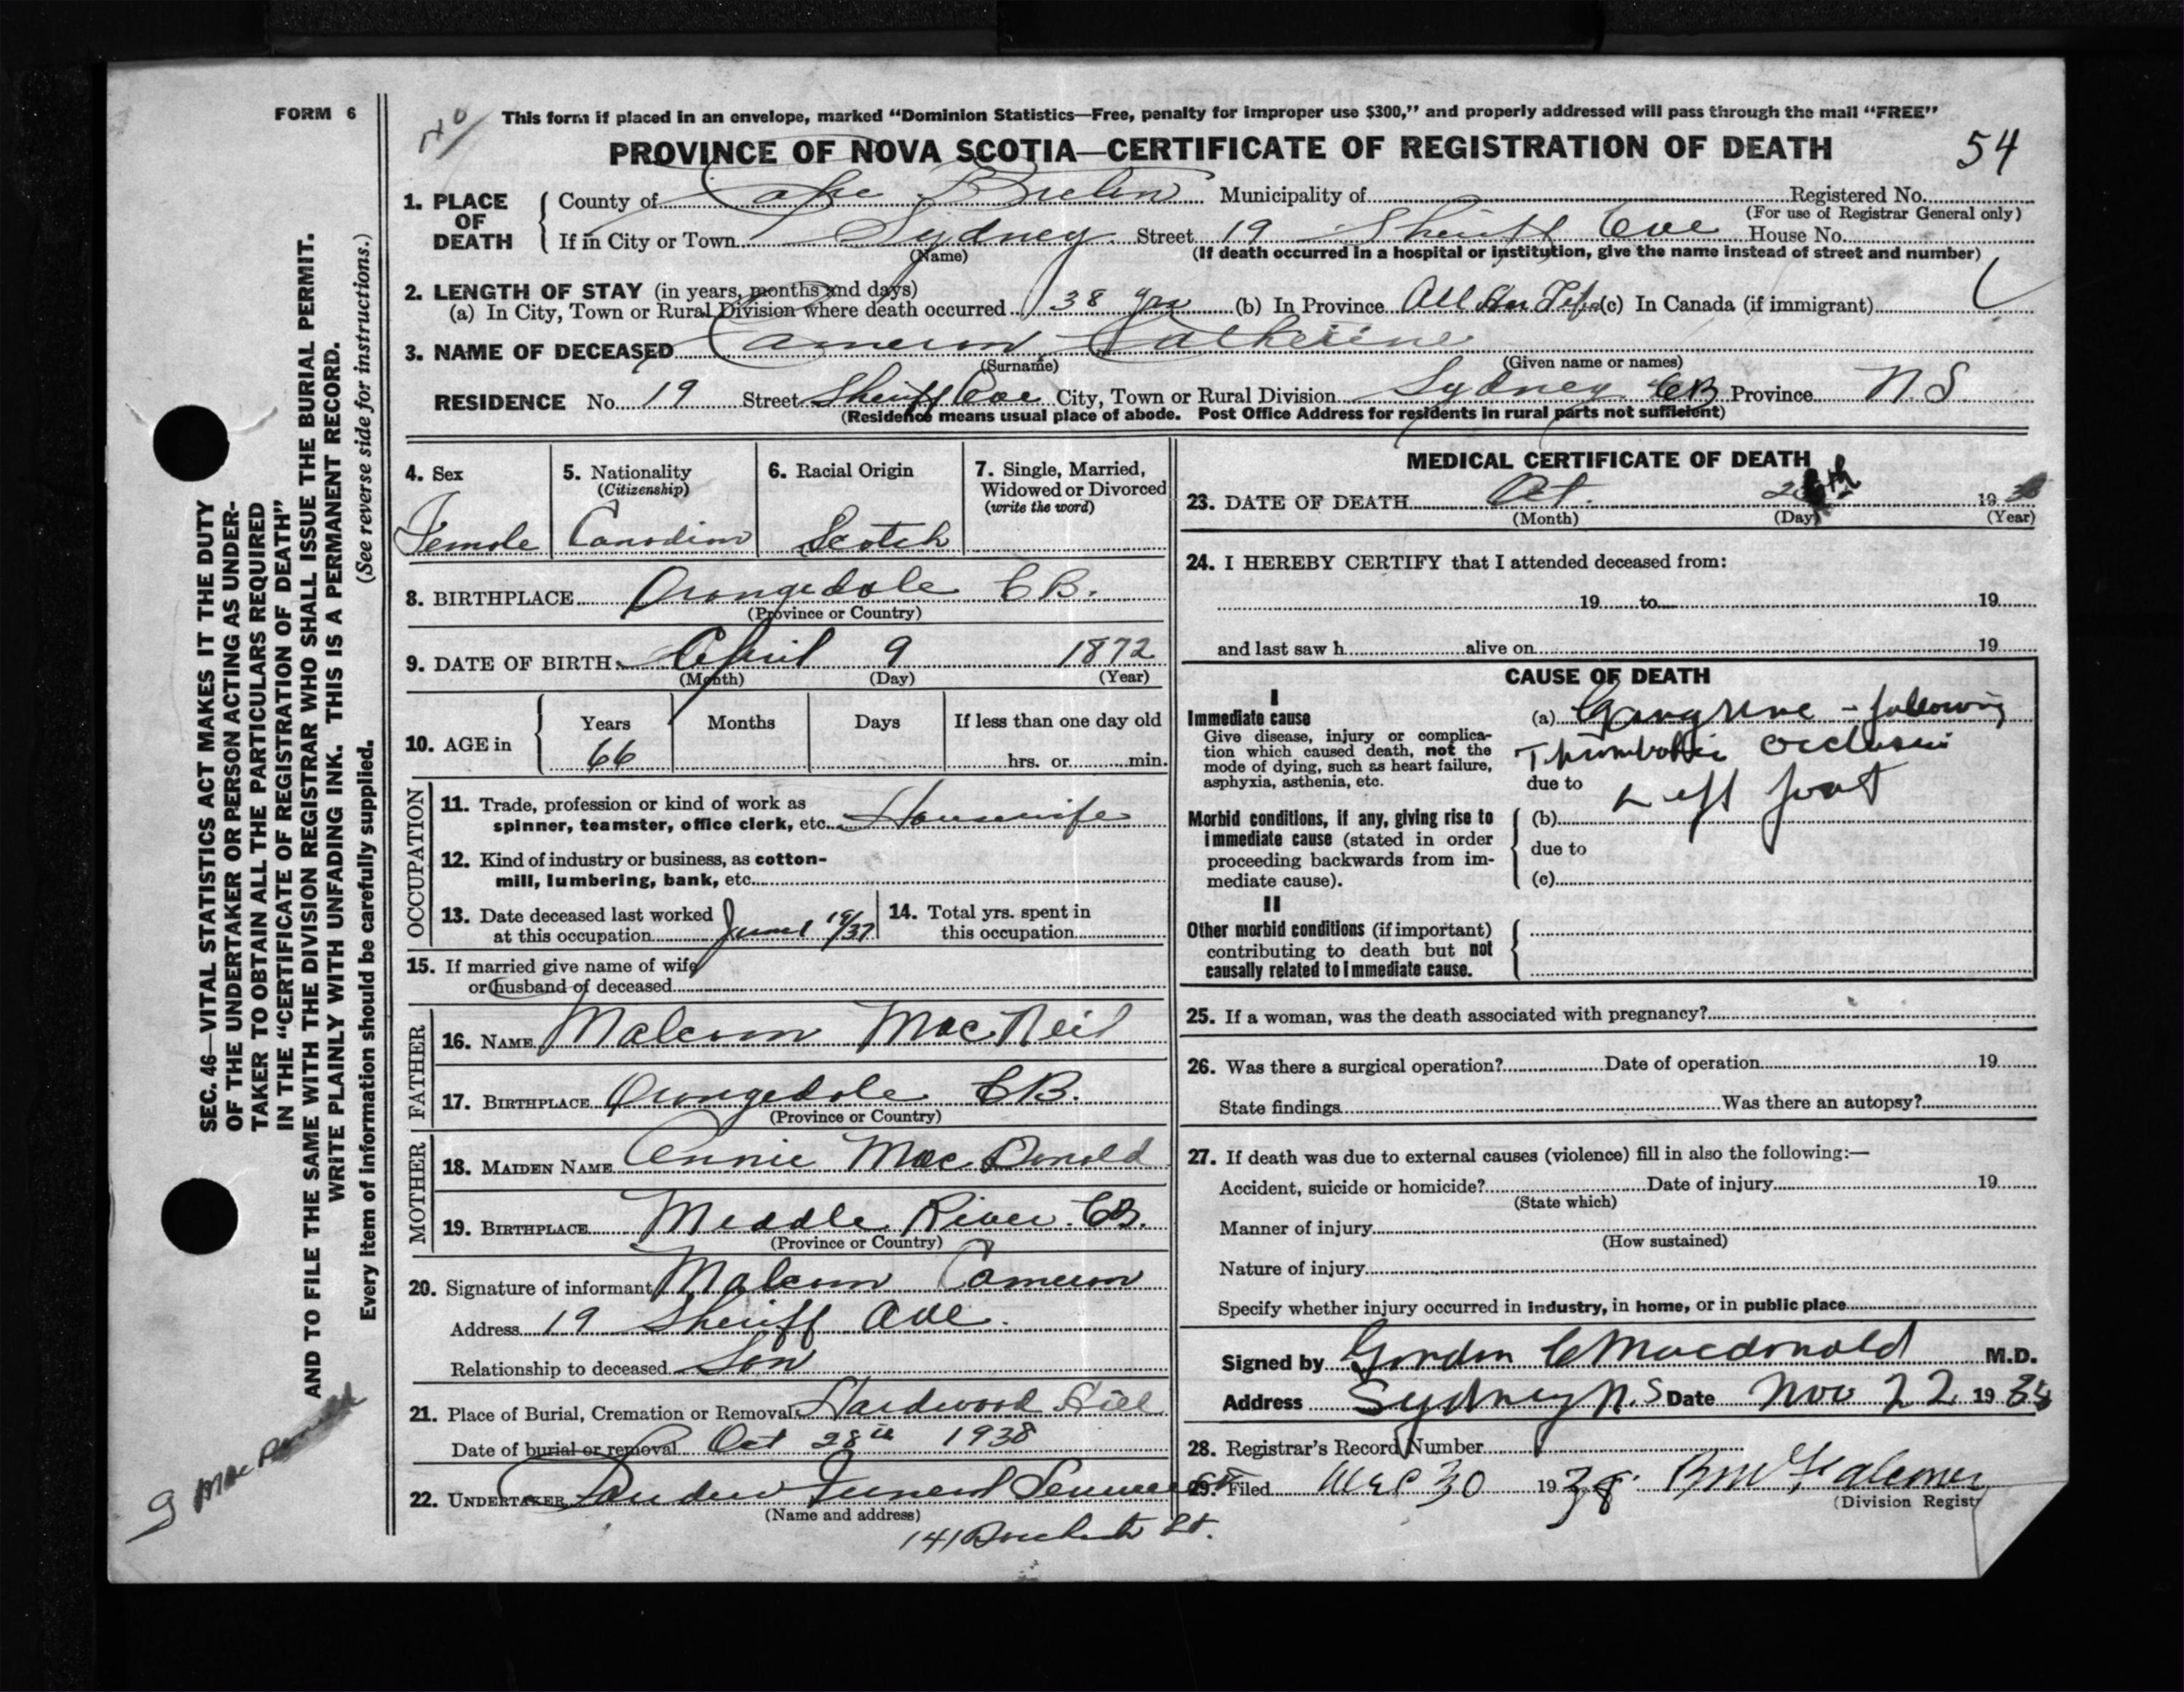 FORM 6
This form if placed in an envelope, marked "Dominion Statistics—Free, penalty for improper use $300," and properly addressed will pass through the mail "FREE"
PROVINCE OF NOVA SCOTIA—CERTIFICATE OF REGISTRATION OF DEATH
54
1. PLACE OF DEATH
County of Cape Breton Municipality of Registered No.
(For use of Registrar General only)
If in City or Town Sydney Street 19 Sheriff Ave House No.
(Name) (If death occurred in a hospital or institution, give the name instead of street and number)
2. LENGTH OF STAY (in years, months and days)
(a) In City, Town or Rural Division where death occurred 38 yrs (b) In Province All Her Life (c) In Canada (if immigrant)
3. NAME OF DECEASED Cameron Catherine
(Surname) (Given name or names)
RESIDENCE No. 19 Street Sheriff Ave City, Town or Rural Division Sydney CB Province N.S.
(Residence means usual place of abode. Post Office Address for residents in rural parts not sufficient)
4. Sex
Female
5. Nationality
(Citizenship)
Canadian
6. Racial Origin
Scotch
7. Single, Married,
Widowed or Divorced
(write the word)
8. BIRTHPLACE Orangedale C.B.
(Province or Country)
9. DATE OF BIRTH April 9 1872
(Month) (Day) (Year)
10. AGE in
Years Months Days If less than one day old
66 hrs. or min.
OCCUPATION
11. Trade, profession or kind of work as
spinner, teamster, office clerk, etc. Housewife
12. Kind of industry or business, as cotton-
mill, lumbering, bank, etc.
13. Date deceased last worked
at this occupation 19/37
14. Total yrs. spent in
this occupation
15. If married give name of wife
or husband of deceased
FATHER
16. NAME Malcom MacNeil
17. BIRTHPLACE Orangedale C.B.
(Province or Country)
MOTHER
18. MAIDEN NAME Annie MacDonald
19. BIRTHPLACE Meddle River C.B.
(Province or Country)
20. Signature of informant Malcom Cameron
Address 19 Sheriff Ave.
Relationship to deceased Son
21. Place of Burial, Cremation or Removal Hardwood Hill
Date of burial or removal Oct 28th 1938
22. UNDERTAKER Funeral
(Name and address)
141 St.
MEDICAL CERTIFICATE OF DEATH
23. DATE OF DEATH Oct. 19
(Month) (Day) (Year)
24. I HEREBY CERTIFY that I attended deceased from:
19 to 19
and last saw h alive on 19
CAUSE OF DEATH
I
Immediate cause
Give disease, injury or complica-
tion which caused death, not the
mode of dying, such as heart failure,
asphyxia, asthenia, etc.
(a) Gangrene - following
Thrombotic occlusion
due to Left foot
Morbid conditions, if any, giving rise to
immediate cause (stated in order
proceeding backwards from im-
mediate cause).
(b)
due to
(c)
II
Other morbid conditions (if important)
contributing to death but not
causally related to immediate cause.
25. If a woman, was the death associated with pregnancy?
26. Was there a surgical operation? Date of operation 19
State findings Was there an autopsy?
27. If death was due to external causes (violence) fill in also the following:—
Accident, suicide or homicide? Date of injury 19
(State which)
Manner of injury
(How sustained)
Nature of injury
Specify whether injury occurred in industry, in home, or in public place
Signed by Gordon C Macdonald M.D.
Address Sydney N.S Date Nov 22 19 38
28. Registrar's Record Number
29. Filed Dec 30 1938
(Division Regist
SEC. 46—VITAL STATISTICS ACT MAKES IT THE DUTY
OF THE UNDERTAKER OR PERSON ACTING AS UNDER-
TAKER TO OBTAIN ALL THE PARTICULARS REQUIRED
IN THE "CERTIFICATE OF REGISTRATION OF DEATH"
AND TO FILE THE SAME WITH THE DIVISION REGISTRAR WHO SHALL ISSUE THE BURIAL PERMIT.
WRITE PLAINLY WITH UNFADING INK. THIS IS A PERMANENT RECORD.
Every item of information should be carefully supplied. (See reverse side for instructions.)
G MacDonald